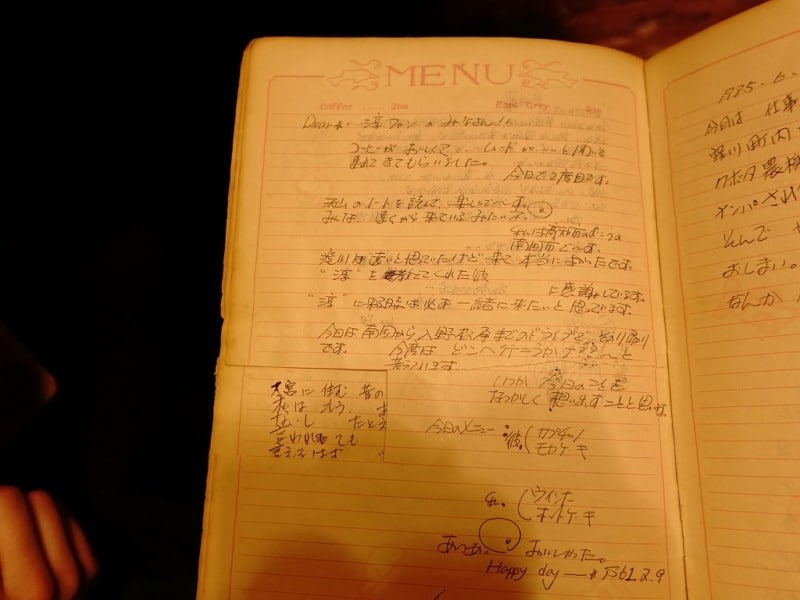 MENU
Coffee ..... Joe
Earl Grey
Dear 淳ファンのみなさん!!
コーヒーがおいしくて ムードが いいと聞いて
連れてきてもらいました。
今日で2度目です。
を読んで、楽しいです。
みんな、遠くから来ているみたいネ。
南国市です。
窪川は遠いと思っていたけど来て本当によかったです。
"淳"を教えてくれた彼
に感謝しています。
"淳"に来る時は必ず一緒に来たいと思っています。
今日は南国から入野松原までのドライブで、その帰り
です。 今度は どこへ行こうかナァ〜と
考えています
いつか 今日のことを
なつかしく 想い出すことと思います。
今日のメニュー
彼 カプチーノ
モカケーキ
ウインナー
ホットケーキ
おいしかった。
Happy day — S61.2.9
に住む 昔の
私は もう、
たとえ
言われても
言えるはず
1985.6.
今日は 仕事
窪川町内
クボタ農機
そんで
おしまい。
なんか